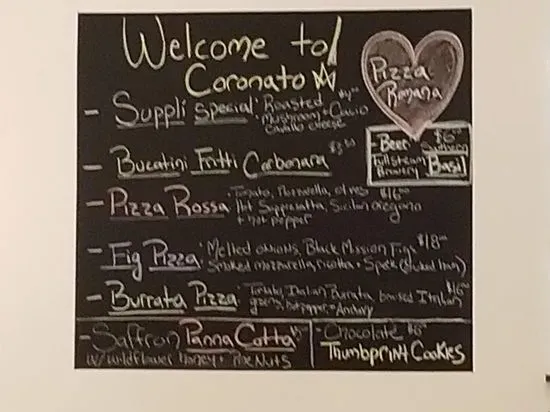 Welcome to!
Coronato
Pizza
Romana
- Suppli Special: Roasted
Mushroom + Cacio
Cavallo cheese
- Beer $6
Fullsteam
Brewery
Southern
Basil
- Bucatini Fritti Carbonara
- Pizza Rossa: Tomato, Mozzarella, olives $16
Hot Suppressatta, Sicilian oregano
+ hot pepper
- Fig Pizza: Melted onions, Black Mission Figs $18
Smoked mozzarella, ricotta + Speck (smoked ham)
- Burrata Pizza: Tomato, Italian Burrata, braised Italian $16
greens, hot pepper + Anchovy
- Saffron Panna Cotta
w/ wildflower honey + Pine Nuts
- Chocolate $6
Thumbprint Cookies